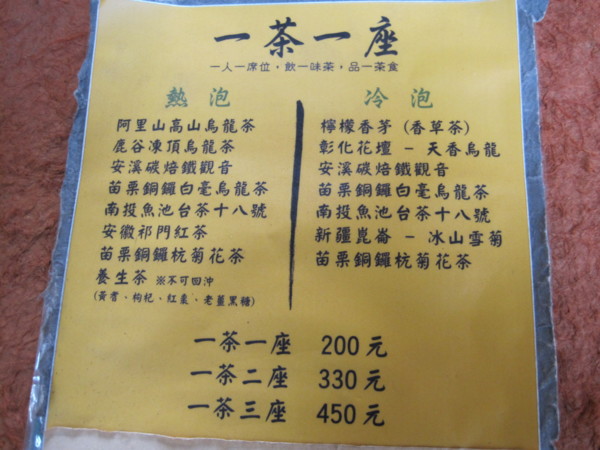 一茶一座
一人一席位，飲一味茶，品一茶食
熱泡
阿里山高山烏龍茶
鹿谷凍頂烏龍茶
安溪碳焙鐵觀音
苗栗銅鑼白毫烏龍茶
南投魚池台茶十八號
安徽祁門紅茶
苗栗銅鑼杭菊花茶
養生茶 ※不可回沖
(黃耆、枸杞、紅棗、老薑黑糖)
冷泡
檸檬香茅 (香草茶)
彰化花壇 - 天香烏龍
安溪碳焙鐵觀音
苗栗銅鑼白毫烏龍茶
南投魚池台茶十八號
新疆崑崙 - 冰山雪菊
苗栗銅鑼杭菊花茶
一茶一座 200元
一茶二座 330元
一茶三座 450元